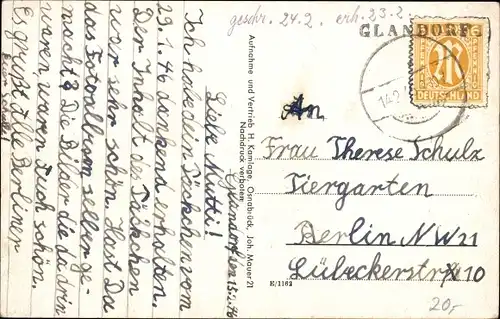 geschr. 24.2. erh. 23.2.
GLANDORF
DEUTSCHLAND
Glandorf den 15.2.46
Liebe Mutti!
Ich habe dein Päckchen vom
29.1.46 dankend erhalten.
Der Inhalt des Päckchen
war sehr schön. Hast Du
das Fotoalbum selber ge-
macht? Die Bilder die da drin
waren, waren auch schön.
Es grüßt Alle Berliner
Aufnahme und Vertrieb H. Kamlage, Osnabrück, Joh. Mauer 21
Nachdruck verboten
An
Frau Therese Schulz
Tiergarten
Berlin NW21
Lübeckerstr. 10
E/1162
20,-